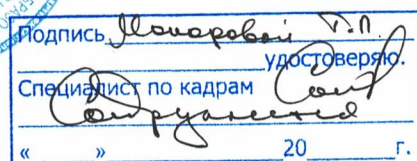 Подпись Макаровой Т.П.
удостоверяю.
Специалист по кадрам
« » 20 г.